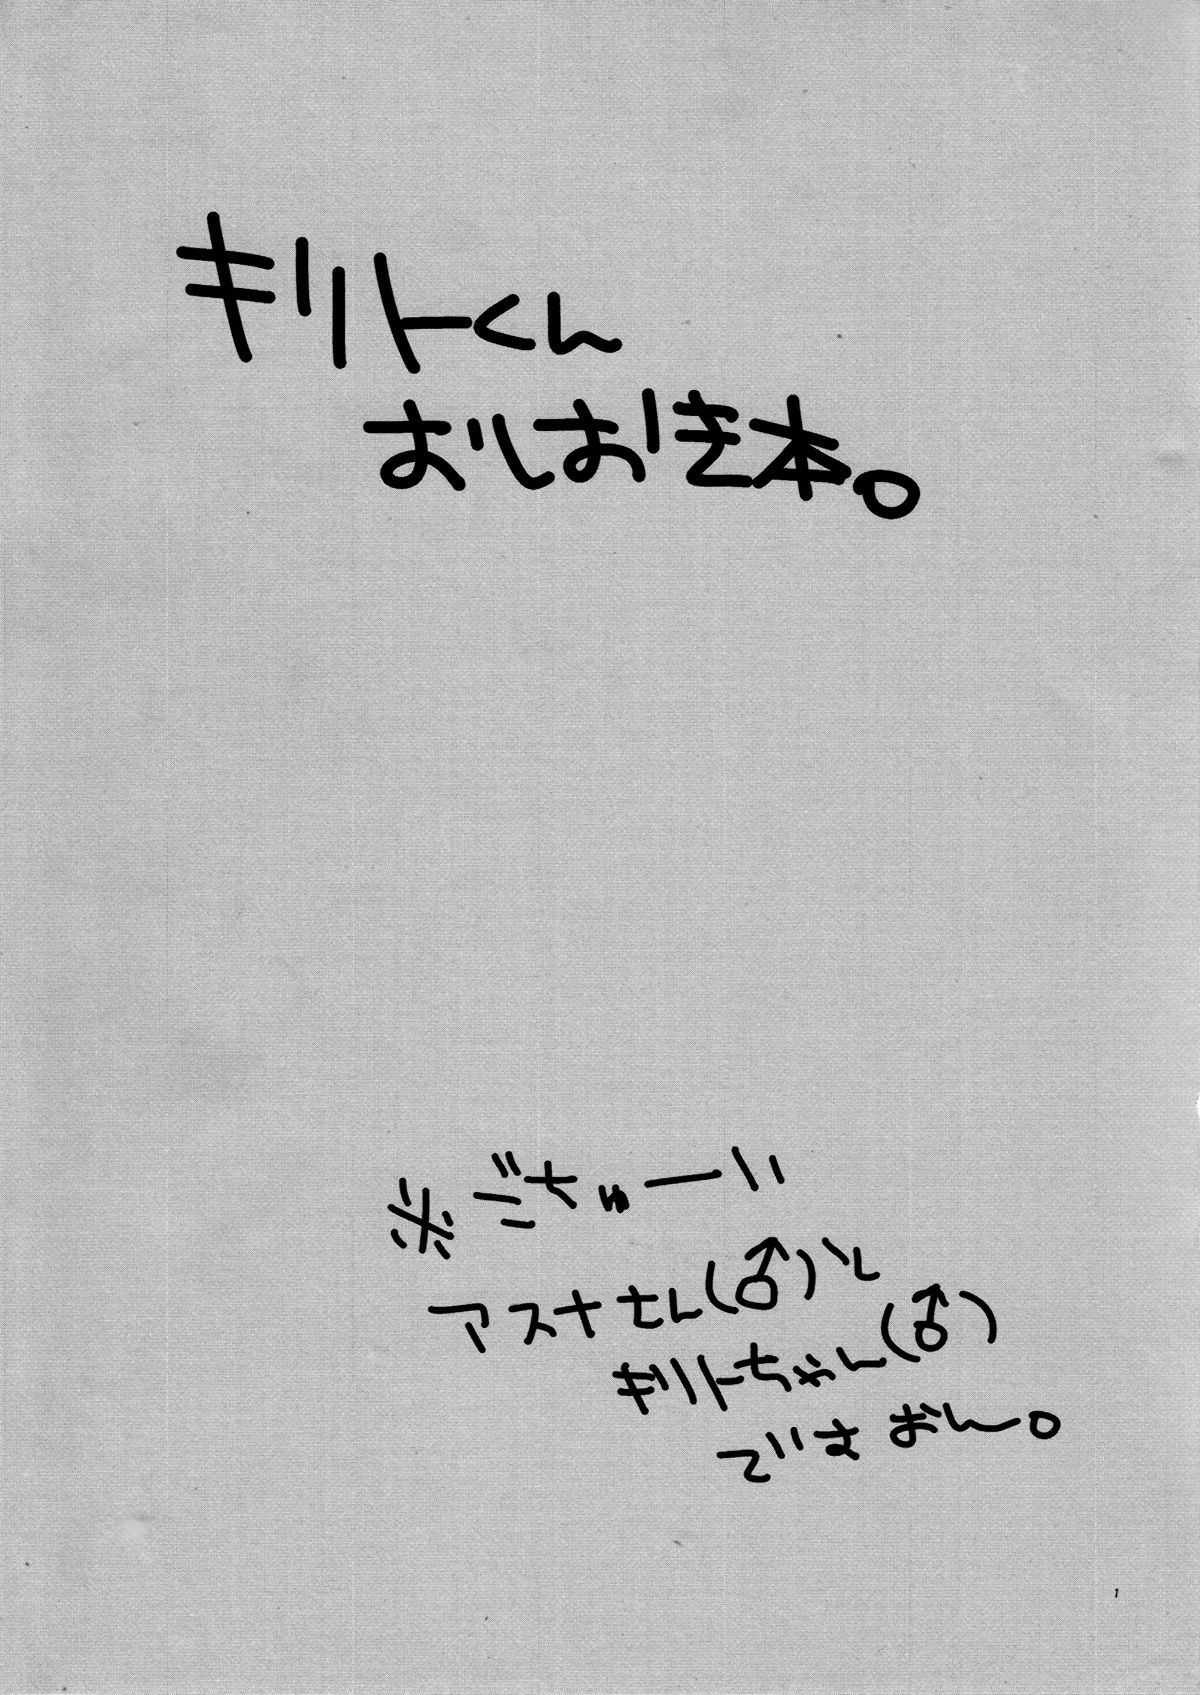 キリトくん
おしおき本。
※ごちゅーい
アスナさん(♂)と
キリトちゃん(♂)
でさおし。
1